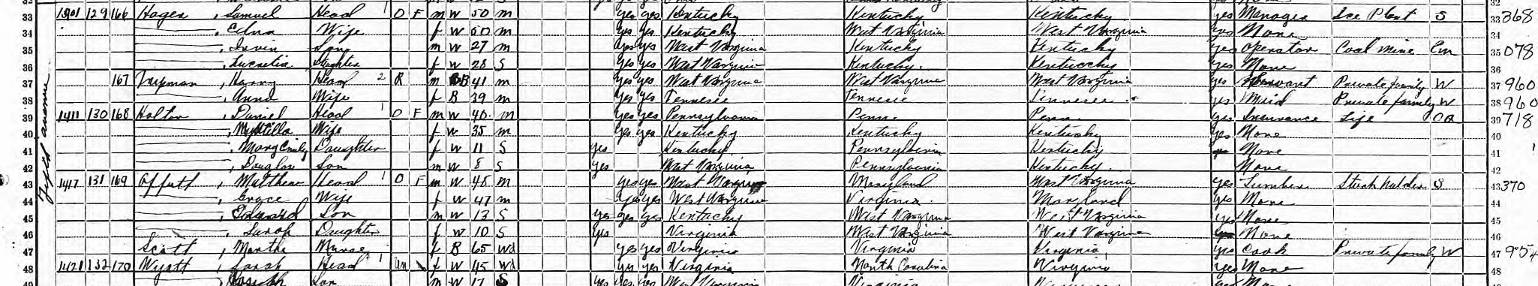 33 1501 129 166 Hager, Samuel Head 1 O F m W 50 m yes yes Kentucky Kentucky Kentucky yes Manager Ice Plant S 33 368
34 ———, Edna Wife f W 50 m yes yes Kentucky West Virginia West Virginia yes None 34
35 ———, Irvin Son m W 27 m yes yes West Virginia Kentucky Kentucky yes Operator Coal mine Em 35 078
36 ———, Lucretia Daughter f W 28 S yes yes West Virginia Kentucky Kentucky yes None 36
37 167 , Harry Head 2 R m B 41 m yes yes West Virginia West Virginia West Virginia yes Servant Private family W 37 960
38 ———, Anna Wife f B 39 m yes yes Tennessee Tennessee Tennessee yes Maid Private family W 38 960
39 1411 130 168 Holton, Daniel Head O F m W 40 m yes yes Pennsylvania Penn. Penn. yes Insurance Life OA 39 718
40 ———, Wife f W 35 m yes yes Kentucky Kentucky Kentucky yes None 40
41 ———, Mary Emily Daughter f W 11 S yes Kentucky Pennsylvania Kentucky None 41
42 ———, Douglas Son m W 8 S yes West Virginia Pennsylvania Kentucky None 42
43 1417 131 169 Offutt, Matthew Head 1 O F m W 48 m yes yes West Virginia Maryland West Virginia yes Lumber Stockholder S 43 370
44 ———, Grace Wife f W 47 m yes yes West Virginia Virginia Maryland yes None 44
45 ———, Edward Son m W 13 S yes yes yes Kentucky West Virginia West Virginia yes None 45
46 ———, Sarah Daughter f W 10 S yes Virginia West Virginia West Virginia None 46
47 Scott, Martha Nurse f B 65 Wd yes yes Virginia Virginia Virginia yes Cook Private family W 47 954
48 1421 132 170 Wyatt, Sarah Head 1 f W 45 Wd yes yes Virginia North Carolina Virginia yes None 48
Joseph Son m W 17 S yes yes yes West Virginia Virginia
avenue